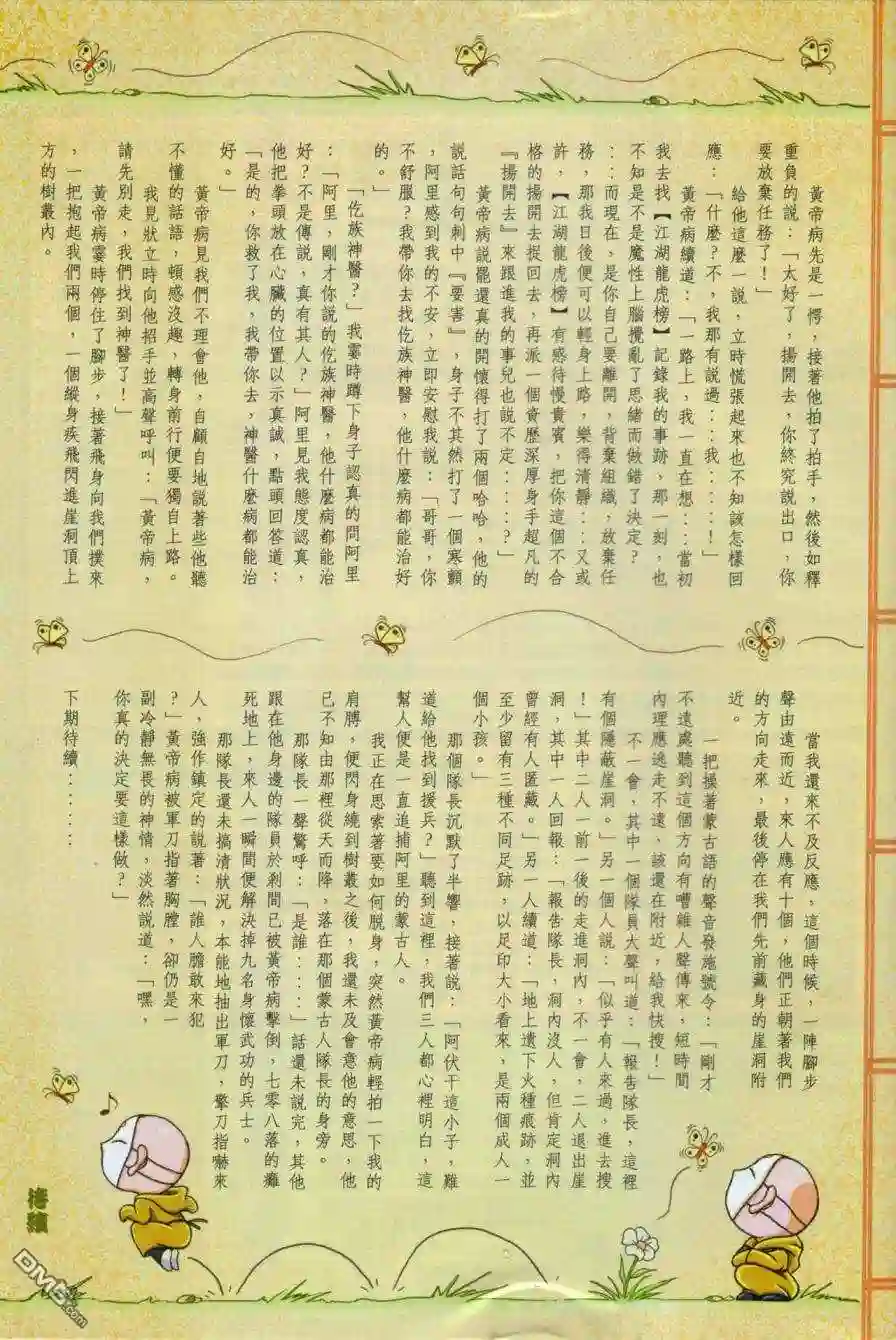 黃帝病先是一愕，接著他拍了拍手，然後如釋
重負的說：「太好了，揚開去，你終究說出口，你
要放棄任務了！」
給他這麼一說，立時慌張起來也不知該怎樣回
應：「什麼？不，我那有說過：：我：：：：！」
黃帝病續道：「一路上，我一直在想：：：當初
我去找【江湖龍虎榜】記錄我的事跡，那一刻，也
不知是不是魔性上腦攪亂了思緒而做錯了決定？
：：而現在，是你自己要離開，背棄組織，放棄任
務，那我日後便可以輕身上路，樂得清靜：：：又或
許，【江湖龍虎榜】有感待慢貴賓，把你這個不合
格的揚開去捉回去，再派一個資歷深厚身手超凡的
『揚開去』來跟進我的事兒也說不定：：：：？」
黃帝病說罷還真的開懷得打了兩個哈哈，他的
說話句句刺中『要害』，身子不其然打了一個寒顫
，阿里感到我的不安，立即安慰我說：「哥哥，你
不舒服？我帶你去找仡族神醫，他什麼病都能治好
的。」
「仡族神醫？」我霎時蹲下身子認真的問阿里
：「阿里，剛才你說的仡族神醫，他什麼病都能治
好？不是傳說，真有其人？」阿里見我態度認真，
他把拳頭放在心臟的位置以示真誠，點頭回答道：
「是的，你救了我，我帶你去，神醫什麼病都能治
好。」
黃帝病見我們不理會他，自顧自地說著些他聽
不懂的話語，頓感沒趣，轉身前行便要獨自上路。
我見狀立時向他招手並高聲呼叫：「黃帝病，
請先別走，我們找到神醫了！」
黃帝病霎時停住了腳步，接著飛身向我們撲來
，一把抱起我們兩個，一個縱身疾飛閃進崖洞頂上
方的樹叢內。
當我還來不及反應，這個時候，一陣腳步
聲由遠而近，來人應有十個，他們正朝著我們
的方向走來，最後停在我們先前藏身的崖洞附
近。
一把操著蒙古語的聲音發施號令：「剛才
不遠處聽到這個方向有嘈雜人聲傳來，短時間
內理應逃走不遠，該還在附近，給我快搜！」
不一會，其中一個隊員大聲叫道：「報告隊長，這裡
有個隱蔽崖洞。」另一個人說：「似乎有人來過，進去搜
！」其中二人一前一後的走進洞內，不一會，二人退出崖
洞，其中一人回報：「報告隊長，洞內沒人，但肯定洞內
曾經有人匿藏。」另一人續道：「地上遺下火種痕跡，並
至少留有三種不同足跡，以足印大小看來，是兩個成人一
個小孩。」
那個隊長沉默了半響，接著說：「阿伏干這小子，難
道給他找到援兵？」聽到這裡，我們三人都心裡明白，這
幫人便是一直追捕阿里的蒙古人。
我正在思索著要如何脫身，突然黃帝病輕拍一下我的
肩膊，便閃身繞到樹叢之後，我還未及會意他的意思，他
已不知由那裡從天而降，落在那個蒙古人隊長的身旁。
那隊長一聲驚呼：「是誰：：：」話還未說完，其他
跟在他身邊的隊員於剎間已被黃帝病擊倒，七零八落的癱
死地上，來人一瞬間便解決掉九名身懷武功的兵士。
那隊長還未搞清狀況，本能地抽出軍刀，擎刀指嚇來
人，強作鎮定的說著：「誰人膽敢來犯
？」黃帝病被軍刀指著胸膛，卻仍是一
副冷靜無畏的神情，淡然說道：「嘿，
你真的決定要這樣做？」
下期待續：：：：：
待續